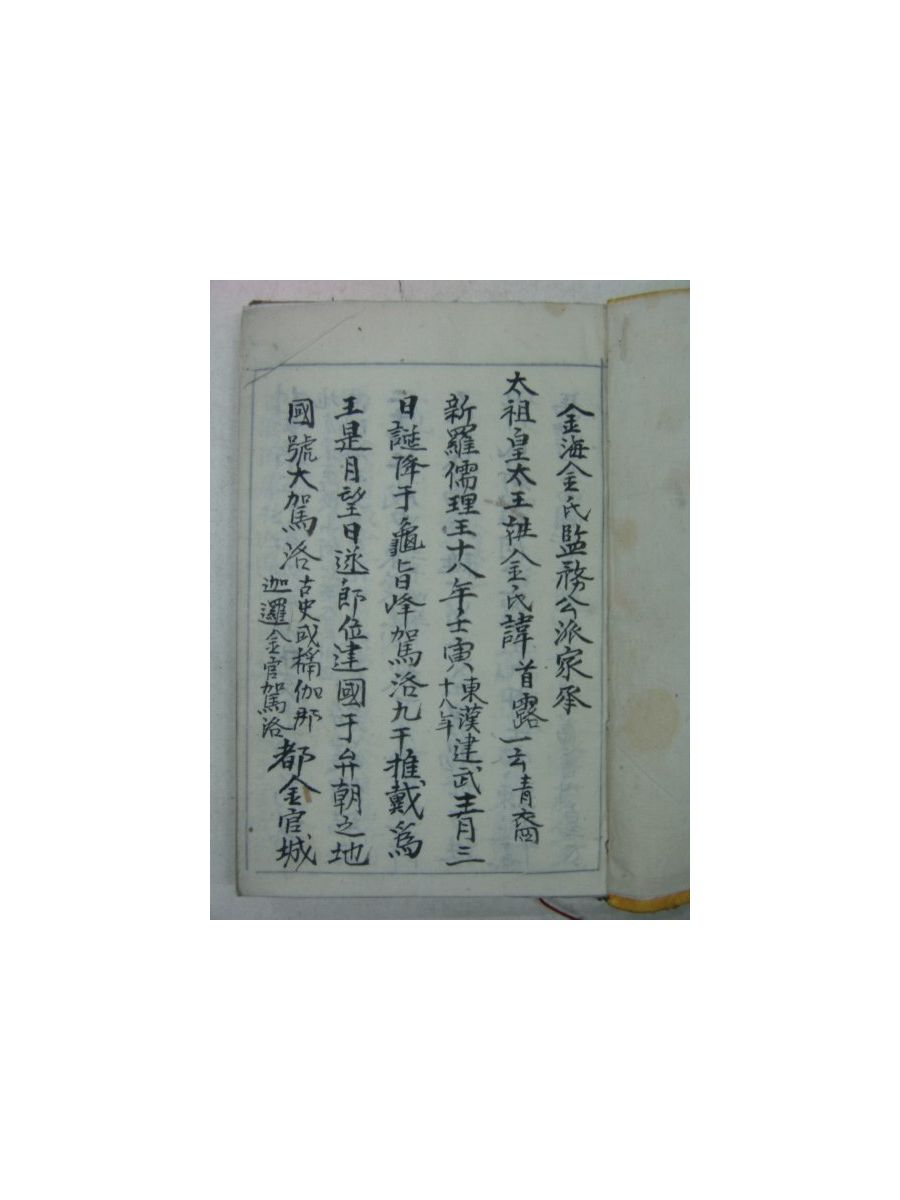 金海金氏監務公派家乘
太祖皇太王姓金氏諱首露一云青裔
新羅儒理王十八年壬寅東漢建武十八年三月三
日誕降于龜旨峰駕洛九干推戴爲
王是月望日遂即位建國于弁朝之地
國號大駕洛古史或稱伽那迦邏金官駕洛都金官城